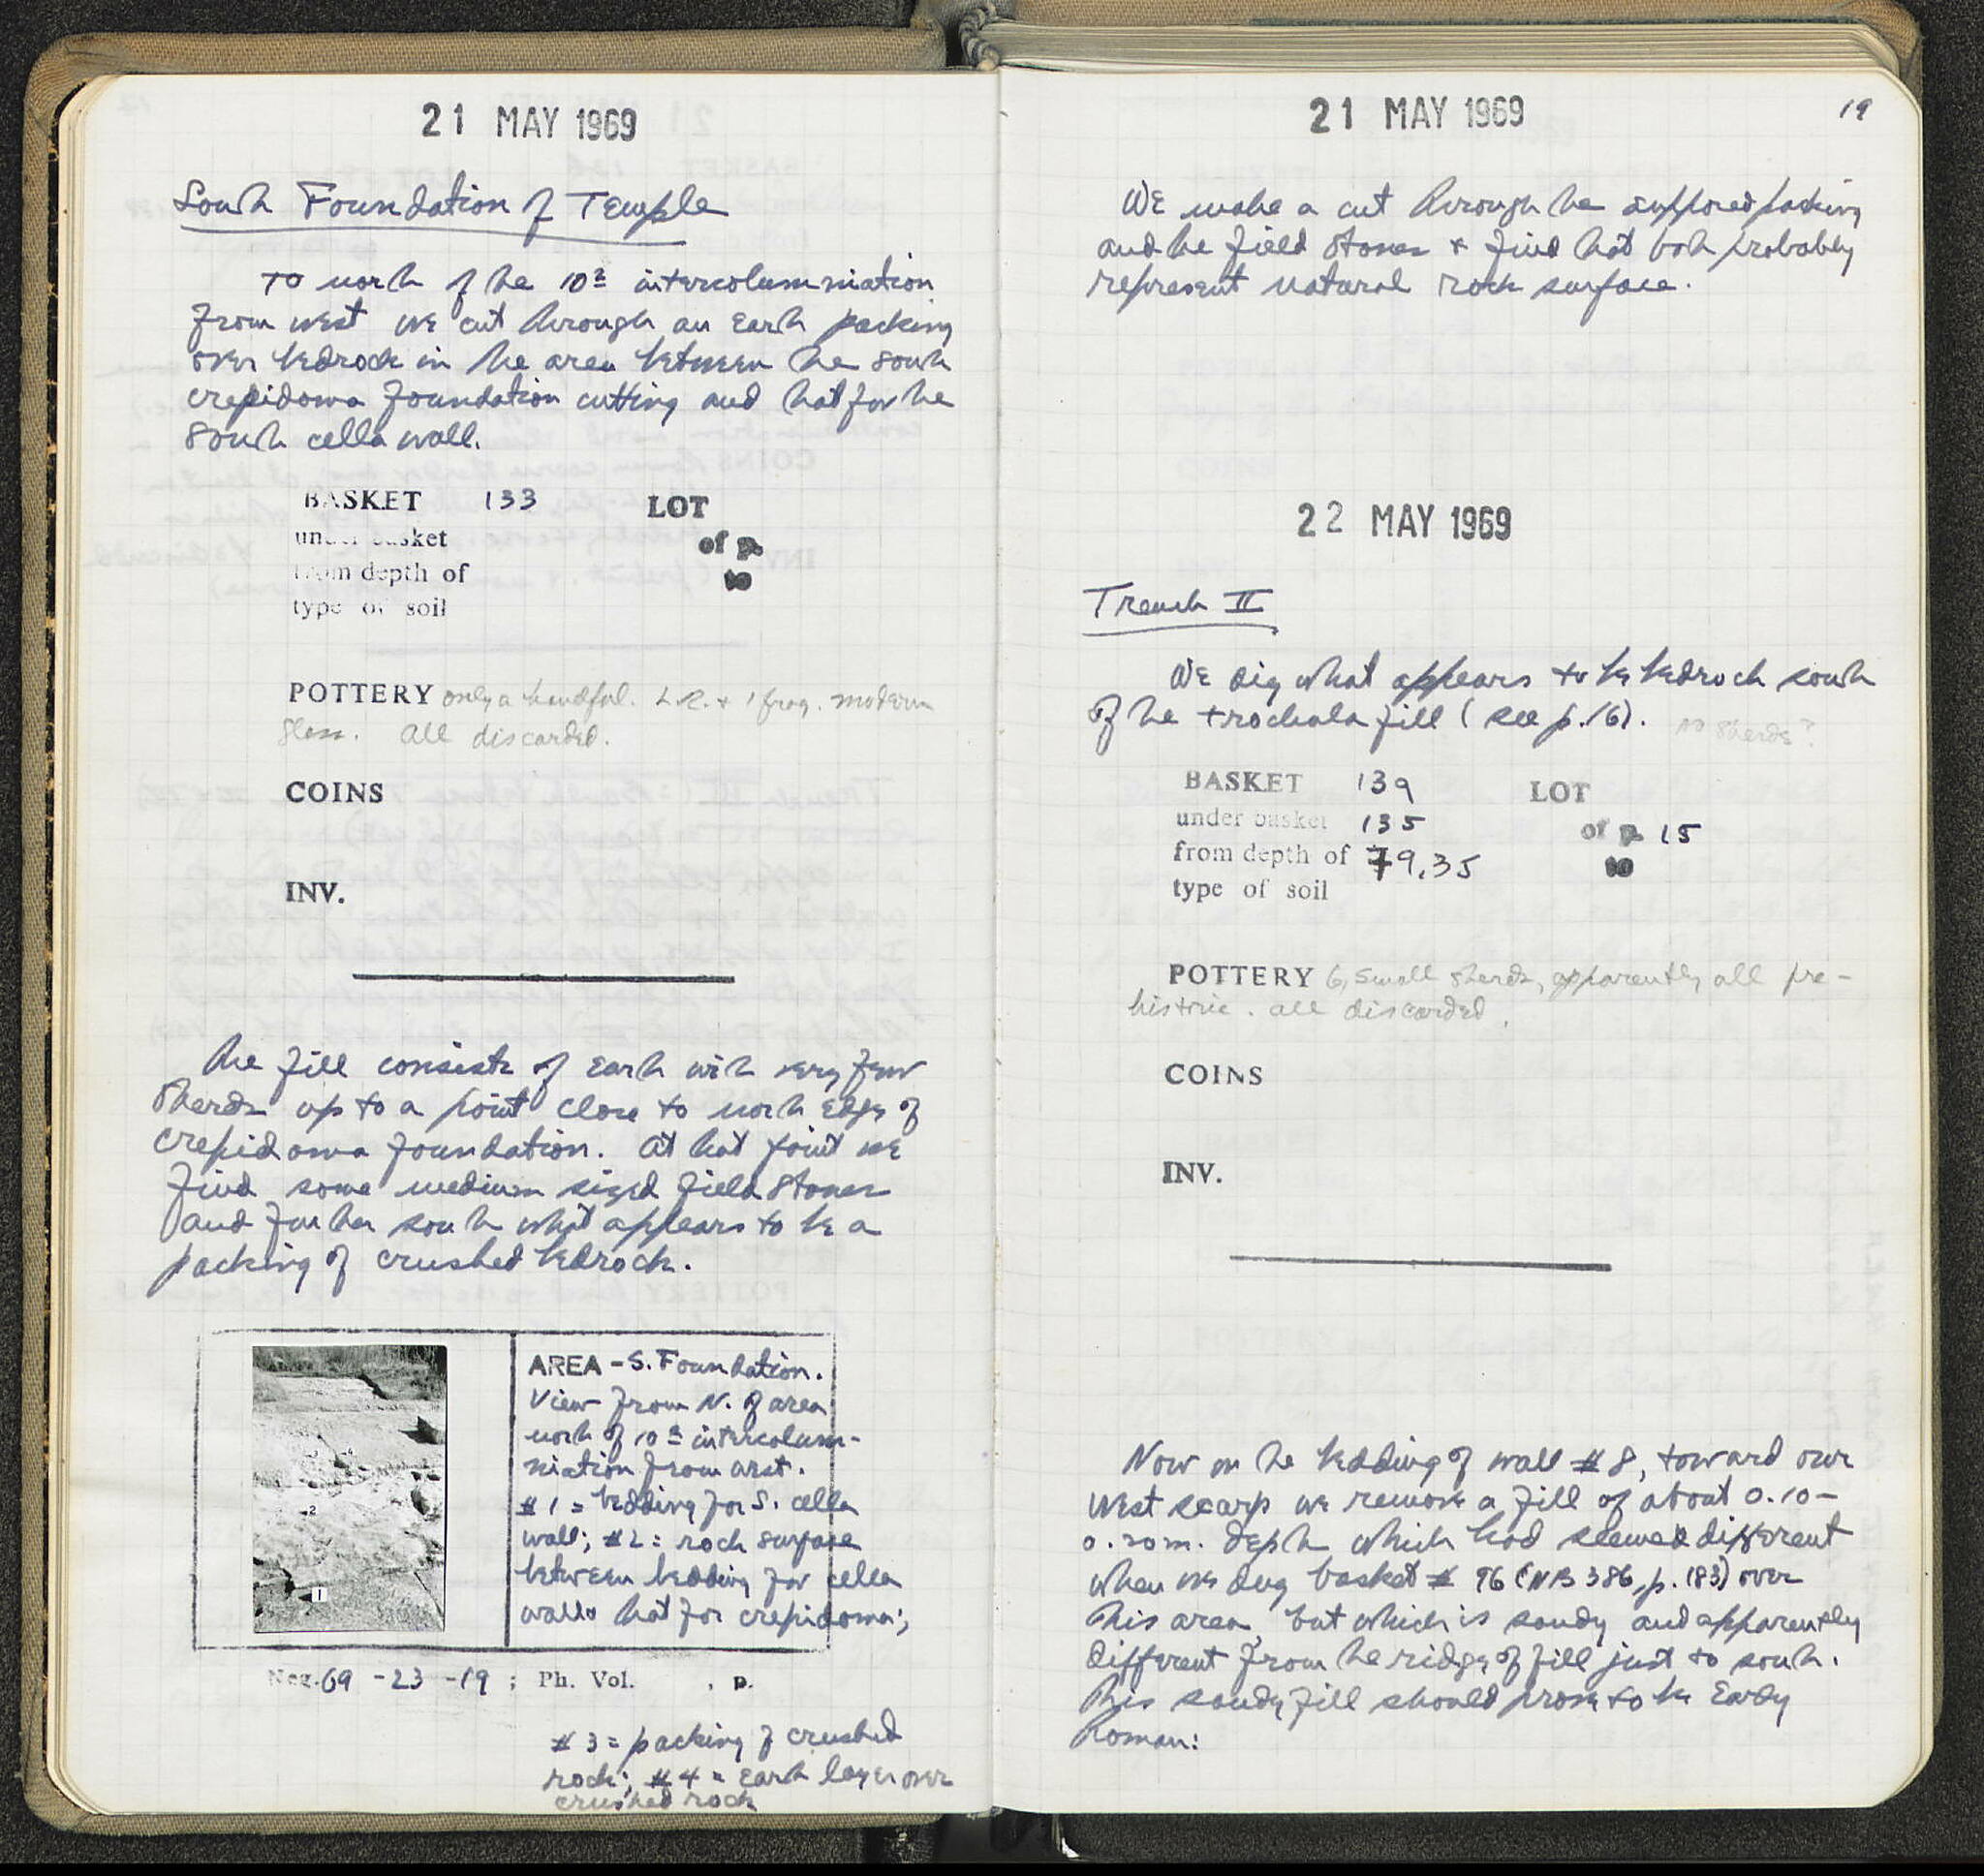 21 MAY 1969
South Foundation of Temple
To north of the 10th intercolumniation
from west we cut through an earth packing
over bedrock in the area between the south
crepidoma foundation cutting and that for the
south cella wall.
BASKET 133 LOT
under basket of p.
from depth of to
type of soil
POTTERY only a handful. L.R. + 1 frag. modern
glass. all discarded.
COINS
INV.
The fill consists of earth with very few
sherds up to a point close to north edge of
crepidoma foundation. At that point we
find some medium sized field stones
and further south what appears to be a
packing of crushed bedrock.
AREA - S. Foundation.
View from N. of area
north of 10th intercolum-
niation from west.
#1 = bedding for S. cella
wall; #2 = rock surface
between bedding for cella
wall & that for crepidoma;
3 4
2
1
Neg. 69 - 23 - 19 ; Ph. Vol. , p.
#3 = packing of crushed
rock; #4 = earth layer over
crushed rock
21 MAY 1969
19
We make a cut through the supposed packing
and the field stones + find that both probably
represent natural rock surface.
22 MAY 1969
Trench II
We dig what appears to be bedrock south
of the trochala fill (see p. 16). no sherds?
BASKET 139 LOT
under basket 135 of p. 15
from depth of 79.35 to
type of soil
POTTERY 6, small sherds, apparently all pre-
historic. all discarded.
COINS
INV.
Now on the bedding of wall #8, toward our
west scarp we remove a fill of about 0.10-
0.20m. depth which had seemed different
when we dug basket # 96 (NB 386, p. 183) over
this area, but which is sandy and apparently
different from the ridge of fill just to south.
This sandy fill should prove to be Early
Roman: